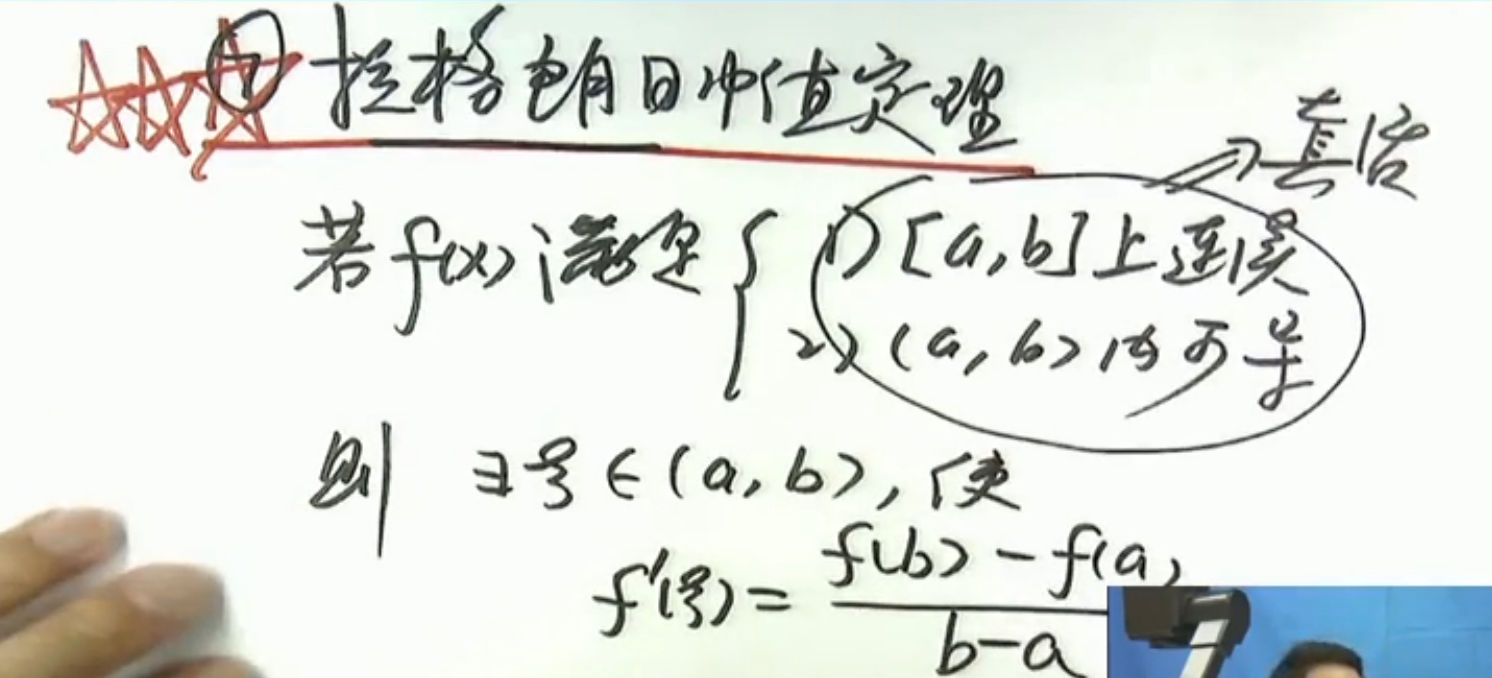 ⑦ 拉格朗日中值定理
套话
若 f(x) 满足 { 1) [a,b] 上连续
2) (a,b) 内可导
则 ∃ξ∈(a,b), 使
f'(ξ) = \frac{f(b) - f(a)}{b-a}